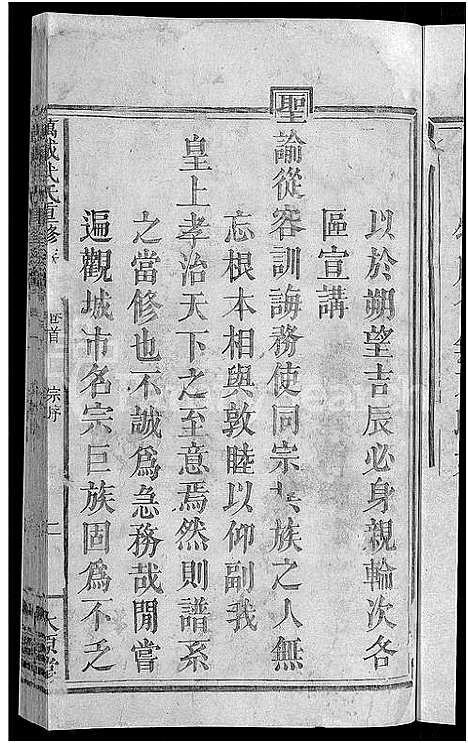 以於朔望吉辰必身親輪次各
區宣講
聖諭從容訓誨務使同宗共族之人無
忘根本相與敦睦以仰副我
皇上孝治天下之至意焉然則譜系
之當修也不誠為急務哉閒嘗
遍觀城市名宗巨族固為不乏
萬載 氏重修
卷首 宗序 二